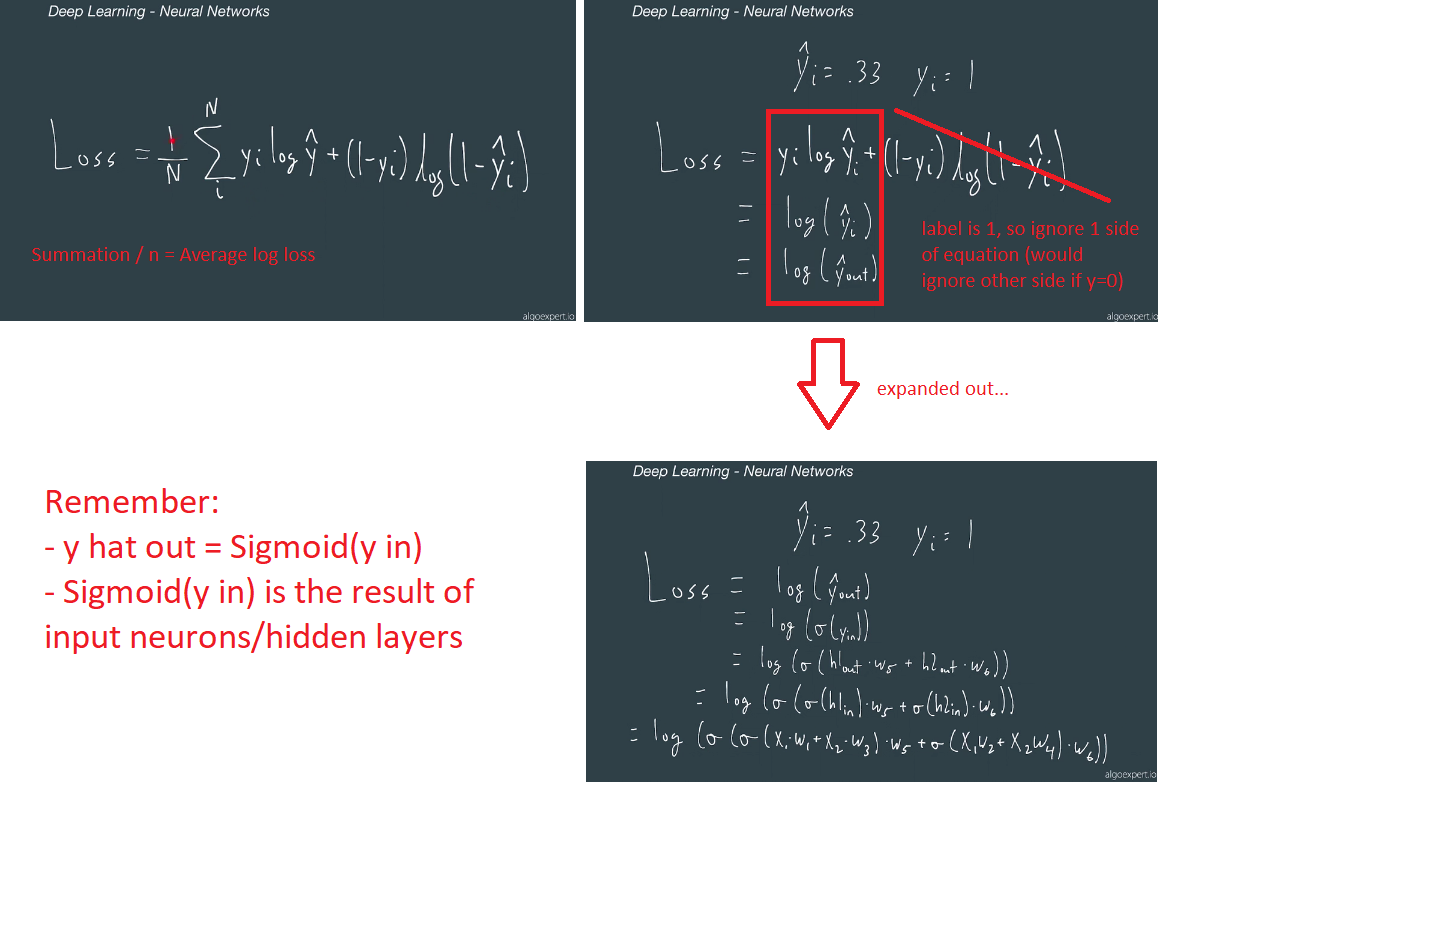 Deep Learning - Neural Networks
Loss = 1/N ∑ᵢᴺ yᵢ log ŷ + (1-yᵢ) log(1-ŷᵢ)
Summation / n = Average log loss
algoexpert.io
Deep Learning - Neural Networks
ŷᵢ = .33 yᵢ = 1
Loss = yᵢ log ŷᵢ + (1-yᵢ) log(1-ŷᵢ)
= log(ŷᵢ)
= log(ŷout)
label is 1, so ignore 1 side
of equation (would
ignore other side if y=0)
algoexpert.io
expanded out...
Remember:
- y hat out = Sigmoid(y in)
- Sigmoid(y in) is the result of
input neurons/hidden layers
Deep Learning - Neural Networks
ŷᵢ = .33 yᵢ = 1
Loss = log(ŷout)
= log(σ(yin))
= log(σ(h1out · w₅ + h2out · w₆))
= log(σ(σ(h1in) · w₅ + σ(h2in) · w₆))
= log(σ(σ(x₁·w₁ + x₂·w₃) · w₅ + σ(x₁w₂ + x₂w₄) · w₆))
algoexpert.io